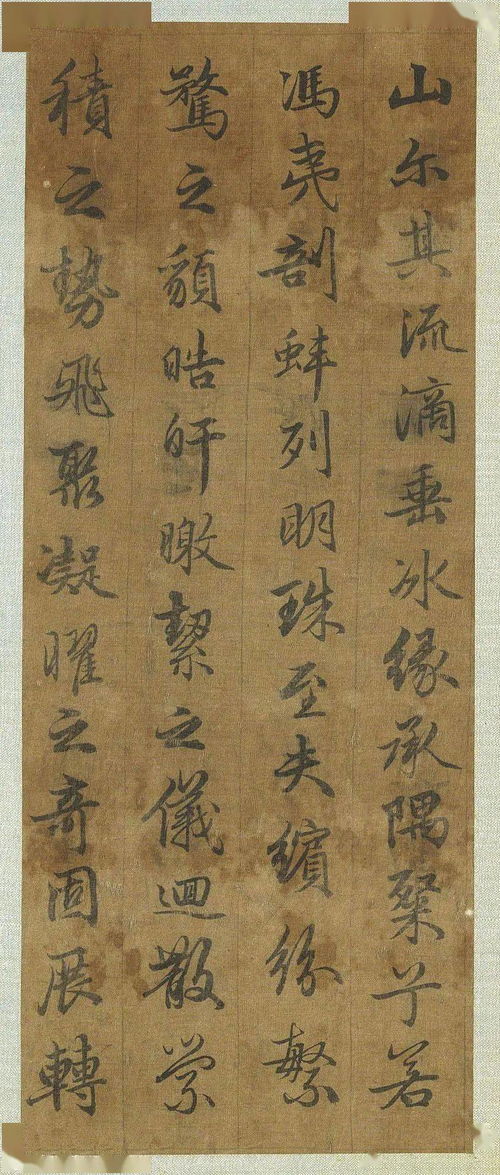 山尔其流滴垂冰緣承隅粲兮若
馮夷剖蚌列明珠至夫繽紛繁
騖之貌晧旰曒絜之儀迴散縈
積之勢飛聚凝曜之奇固展轉